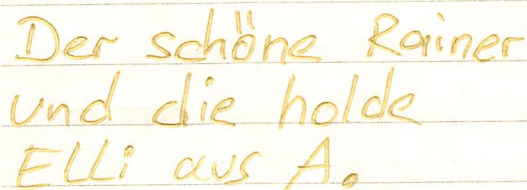 Der schöne Rainer
und die holde
Elli aus A.